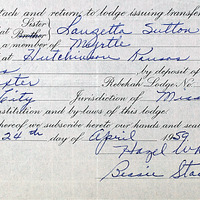 tach and return to lodge issuing transfer
Sister
at Brother Lauzetta Sutton
a member of Myrtle
at Hutchinson Kansas
by deposit of
Rebekah Lodge No.
City Jurisdiction of Miss
onstitution and by-laws of this lodge.
hereof we subscribe hereto our hands and sea
24th day of April 1959
Hazel Wh
Bessie Sta